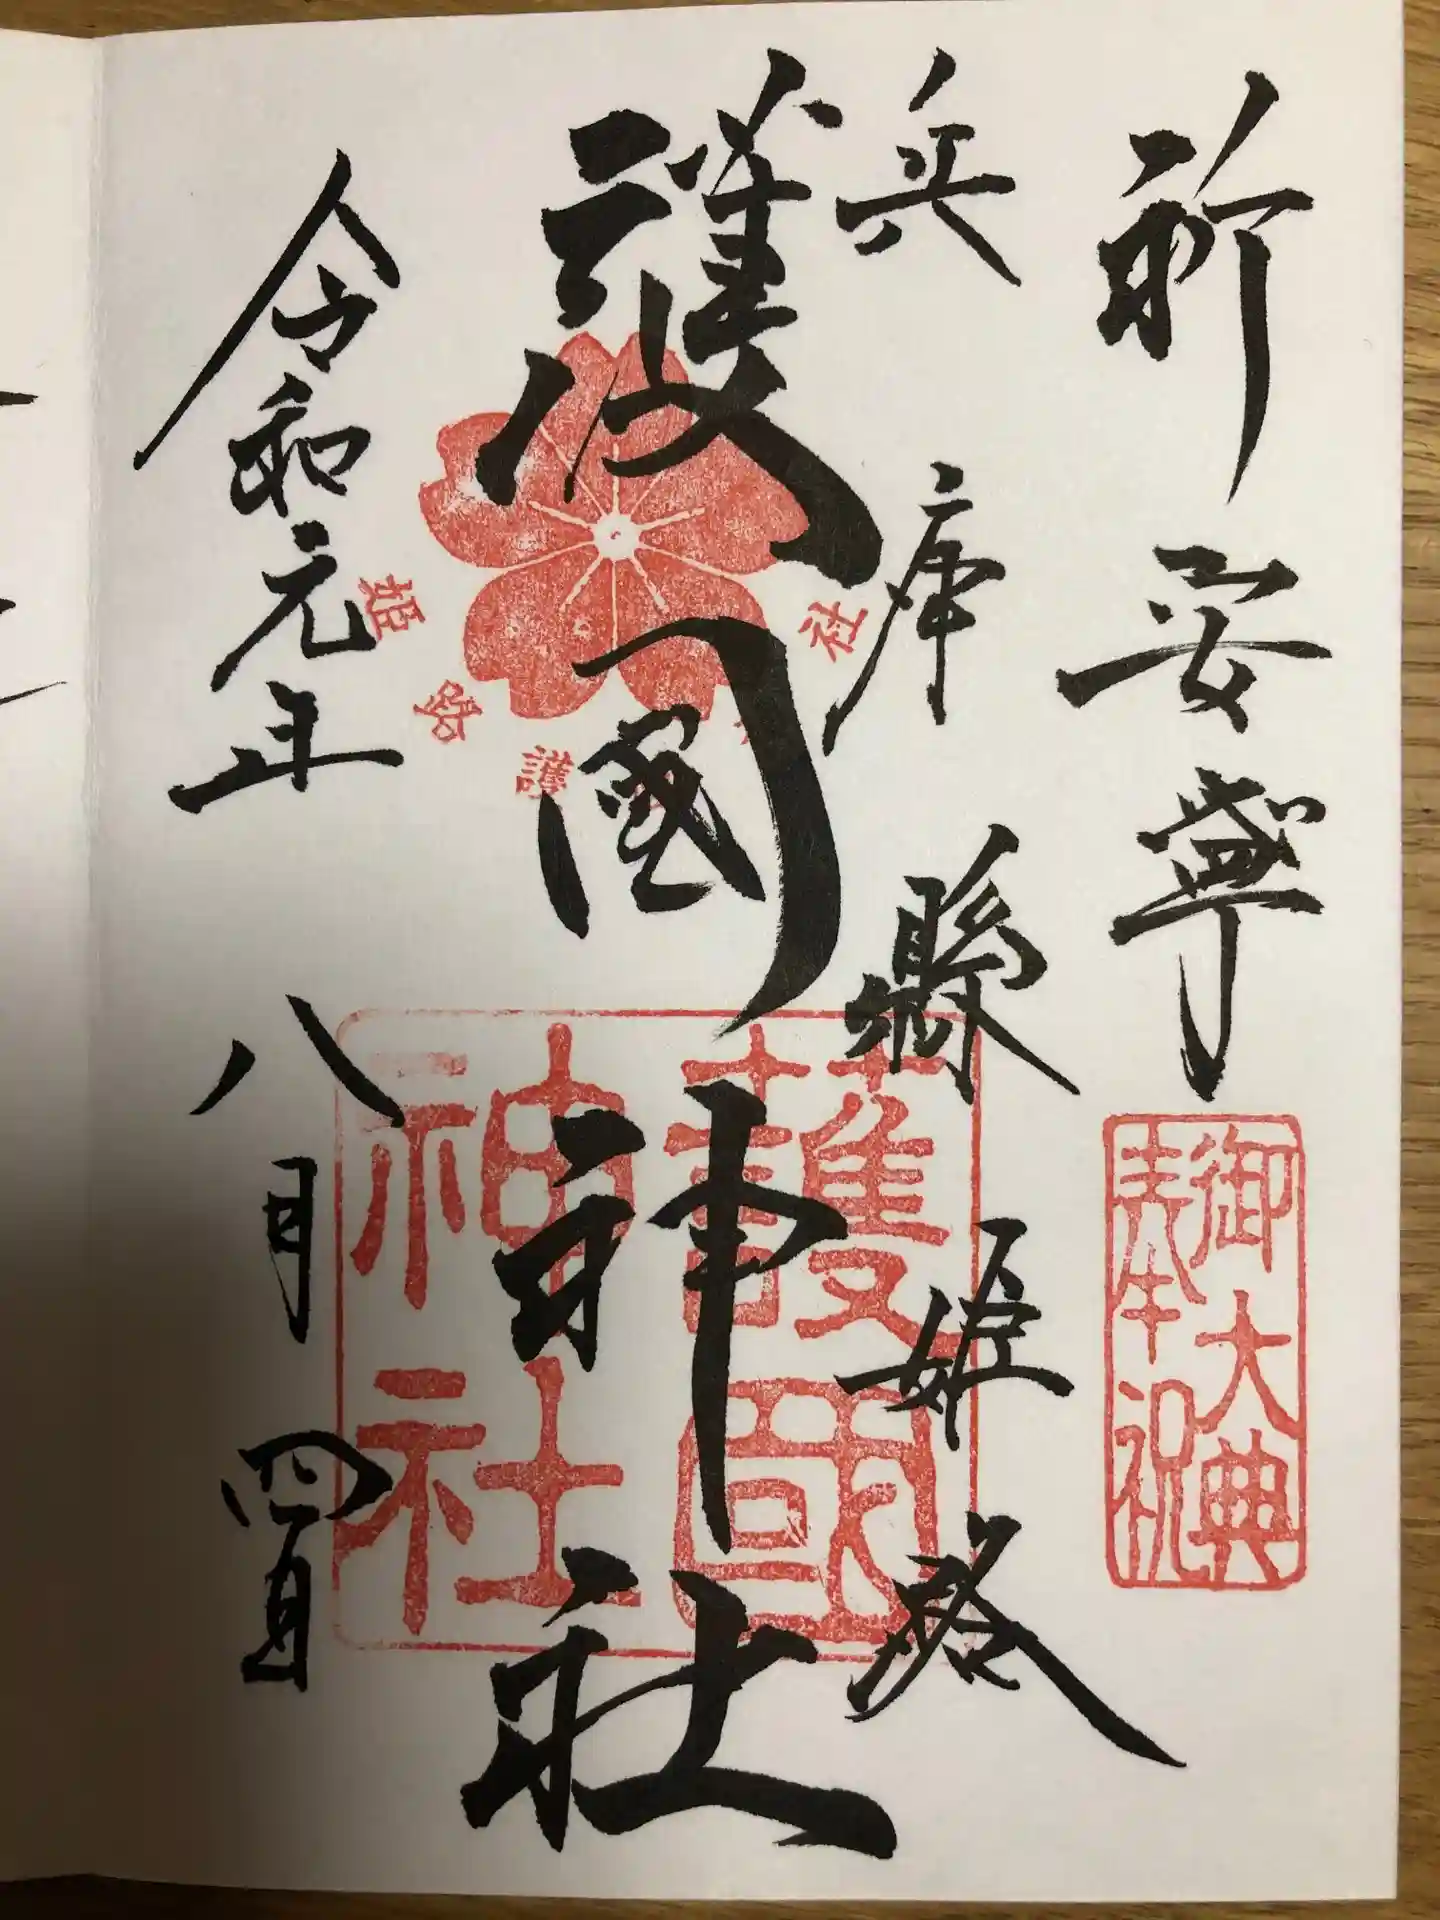 祈安寧
御大典
奉祝
兵庫縣姫路
護國神社
護國
神社
姫路護社
令和元年八月四日